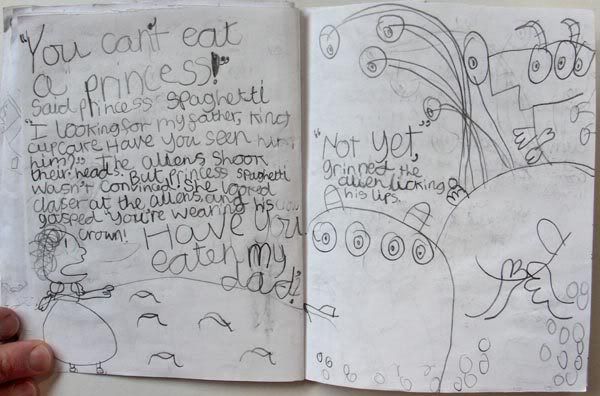 "You can't eat
a princess!"
Said princess spaghetti
"I looking for my father, King
cupcake Have you seen him
him?" The aliens shook
their heads. But princess spaghetti
wasn't convinced! She looked
closer at the aliens and
gasped you're wearing his
crown!
Have you
eaten my
dad?
"Not yet,"
grinned the
alien licking
his lips.